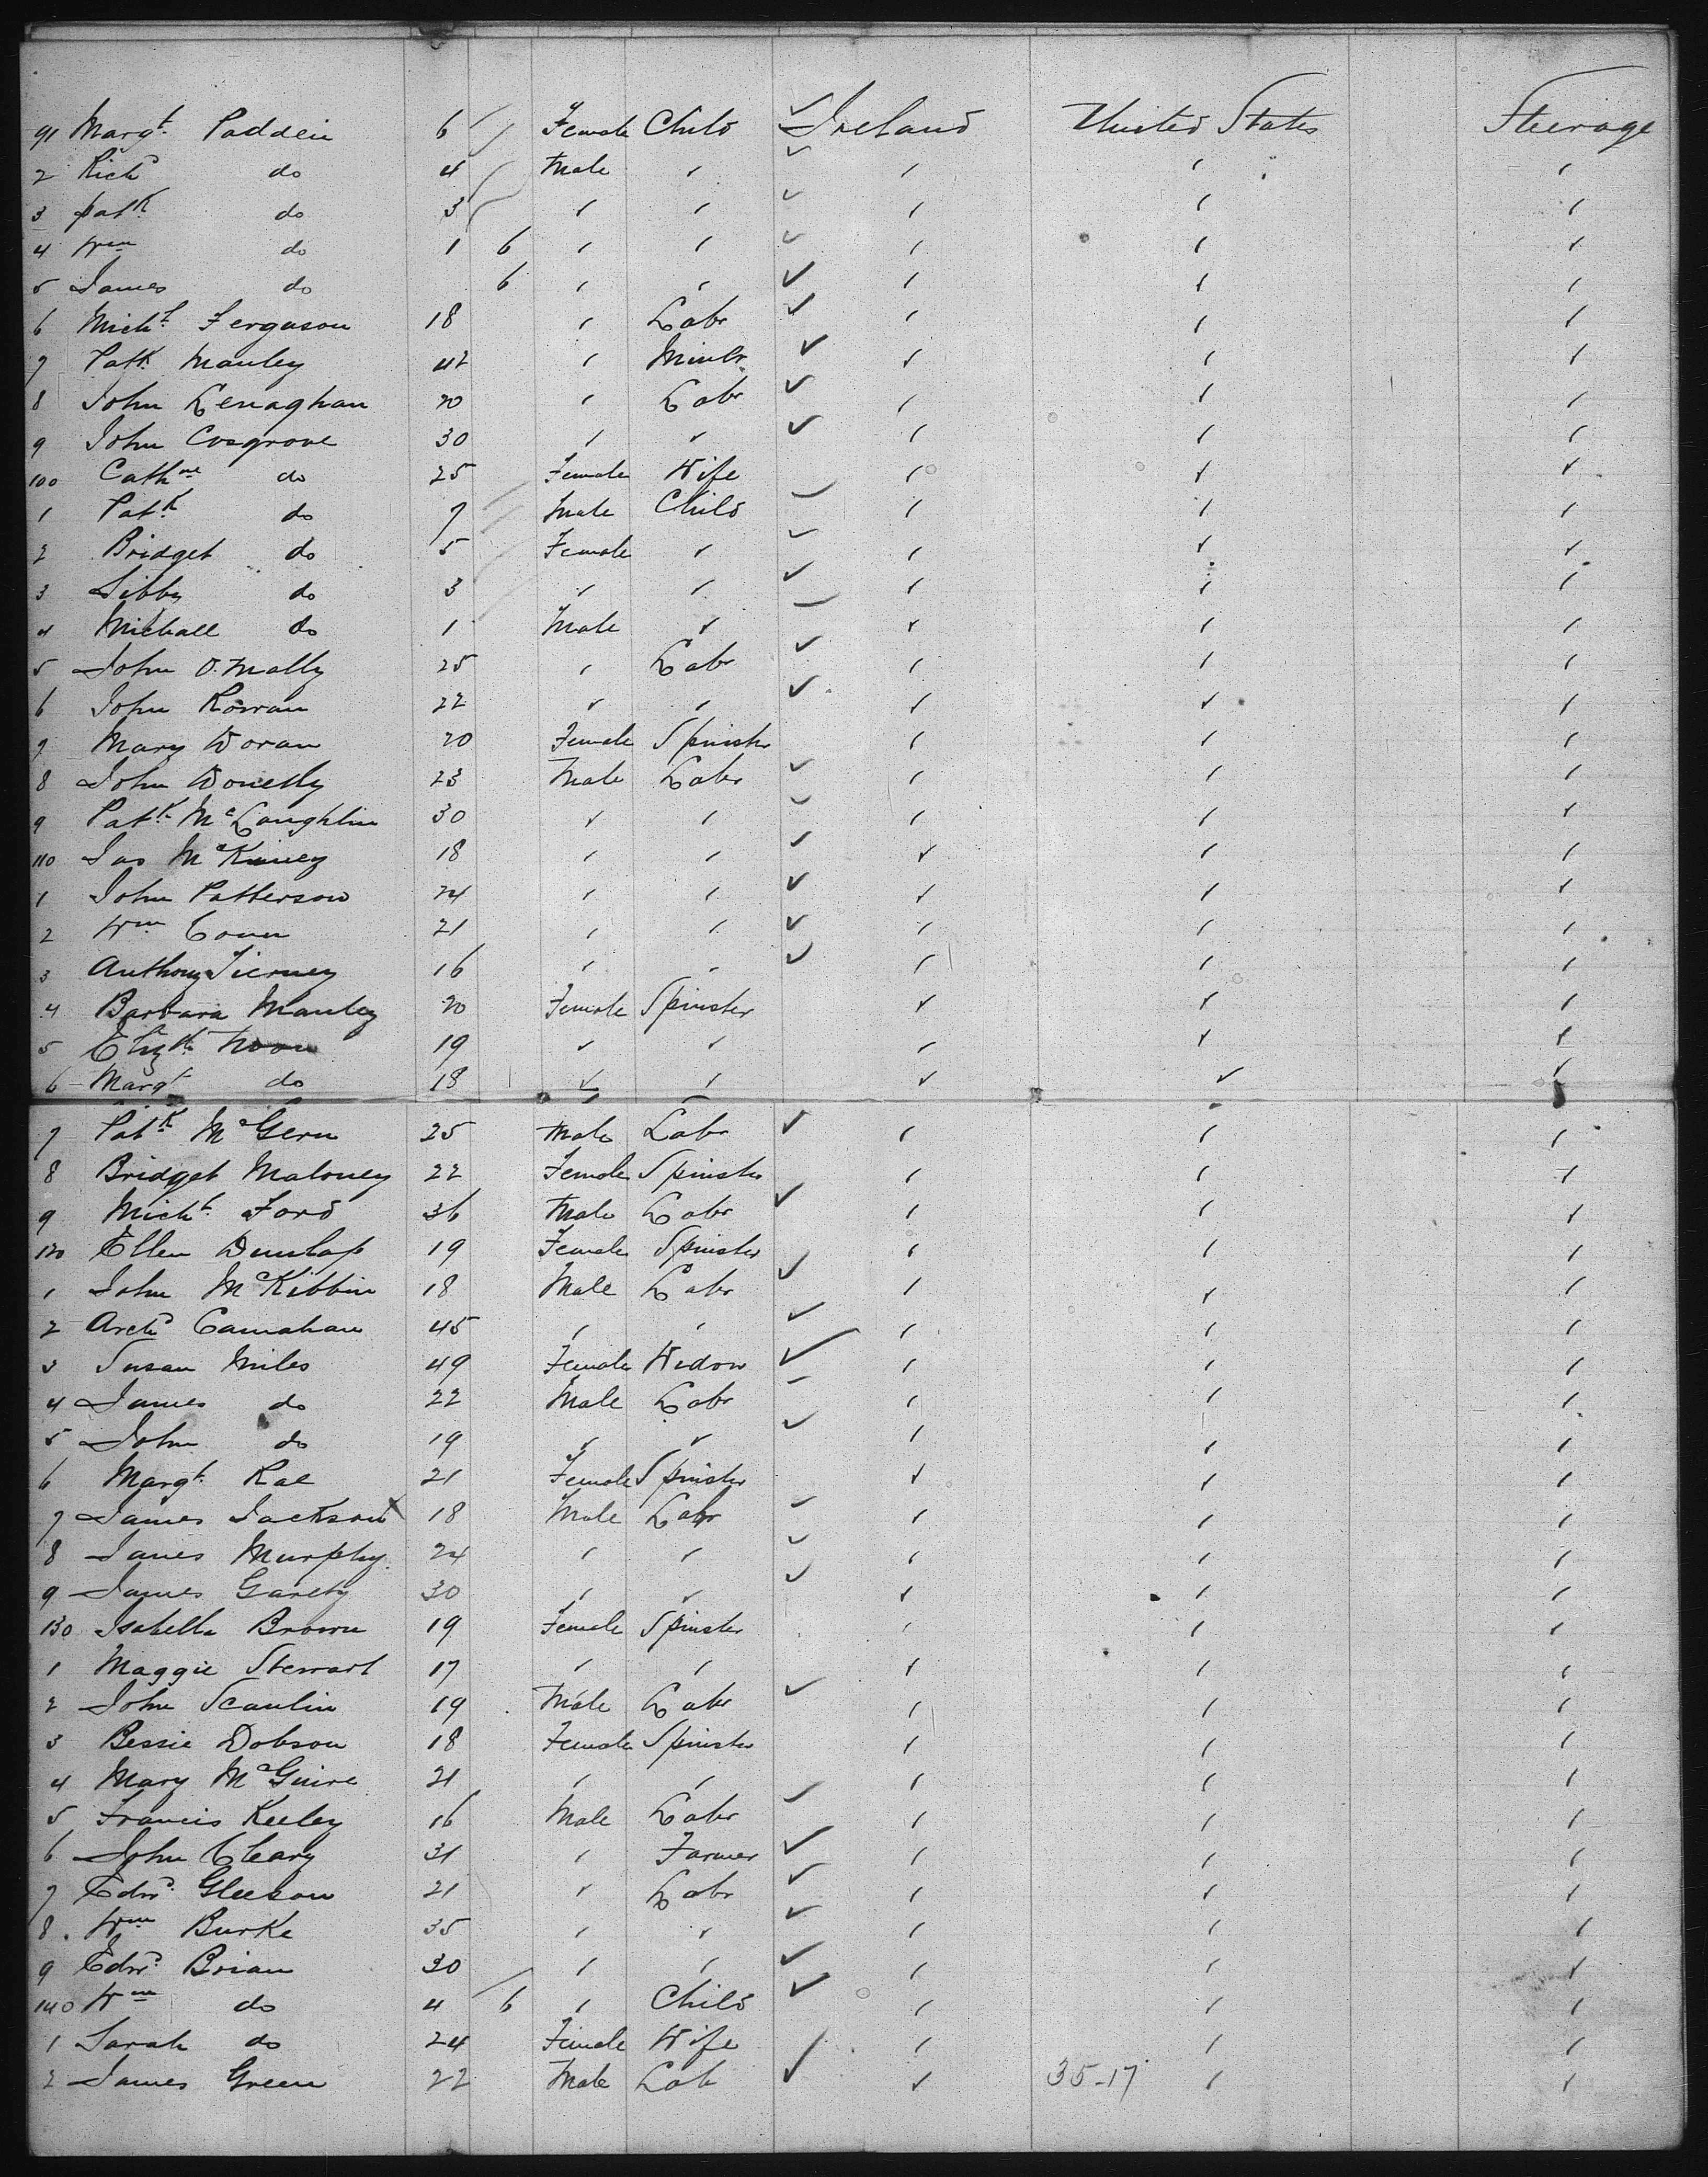 91 Margt. Padden 6 Female Child Ireland United States Steerage
2 Richd do 4 Male " " " "
3 patk do 3 " " " " "
4 Wm do 1 6 " " " " "
5 James do 6 " " " " "
6 Michl. Ferguson 18 " Labr " " "
7 Patk Manley 42 " Miner " " "
8 John Lenaghan 20 " Labr " " "
9 John Cosgrove 30 " " " " "
100 Cathne do 25 Female Wife " " "
1 Patk do 7 Male Child " " "
2 Bridget do 5 Female " " " "
3 Libby do 3 " " " " "
4 Michall do 1 Male " " " "
5 John O.Mally 25 " Labr " " "
6 John Rowan 22 " " " " "
7 Mary Doran 20 Female Spinster " " "
8 John Donelly 23 Male Labr " " "
9 Patk McLoughlin 30 " " " " "
110 Jas McKinney 18 " " " " "
1 John Patterson 24 " " " " "
2 Wm 21 " " " " "
3 Anthony Tierney 16 " " " " "
4 Barbara Manley 20 Female Spinster " " "
5 Elizth Noon 19 " " " " "
6 Margt do 18 " " " " "
7 Patk McGern 25 Male Labr " " "
8 Bridget Maloney 22 Female Spinster " " "
9 Michl. Ford 36 Male Labr " " "
120 Ellen Dunlap 19 Female Spinster " " "
1 John McKibbin 18 Male Labr " " "
2 Archd Carnahan 45 " " " " "
3 Susan Miles 49 Female Widow " " "
4 James do 22 Male Labr " " "
5 John do 19 " " " " "
6 Margt. Rae 21 Female Spinster " " "
7 James Jackson 18 Male Labr " " "
8 James Murphy 24 " " " " "
9 James Garety 30 " " " " "
130 Isabella Brown 19 Female Spinster " " "
1 Maggie Stewart 17 " " " " "
2 John Scanlin 19 Male Labr " " "
3 Bessie Dobson 18 Female Spinster " " "
4 Mary McGuire 21 " " " " "
5 Francis Keeley 16 Male Labr " " "
6 John Cleary 31 " Farmer " " "
7 Edwd. Gleeson 21 " Labr " " "
8 Wm Burke 35 " " " " "
9 Edwd. Brian 30 " " " " "
140 Wm do 4 6 " Child " " "
1 Sarah do 24 Female Wife " " "
2 James Green 22 Male Lab " 35-17 " "